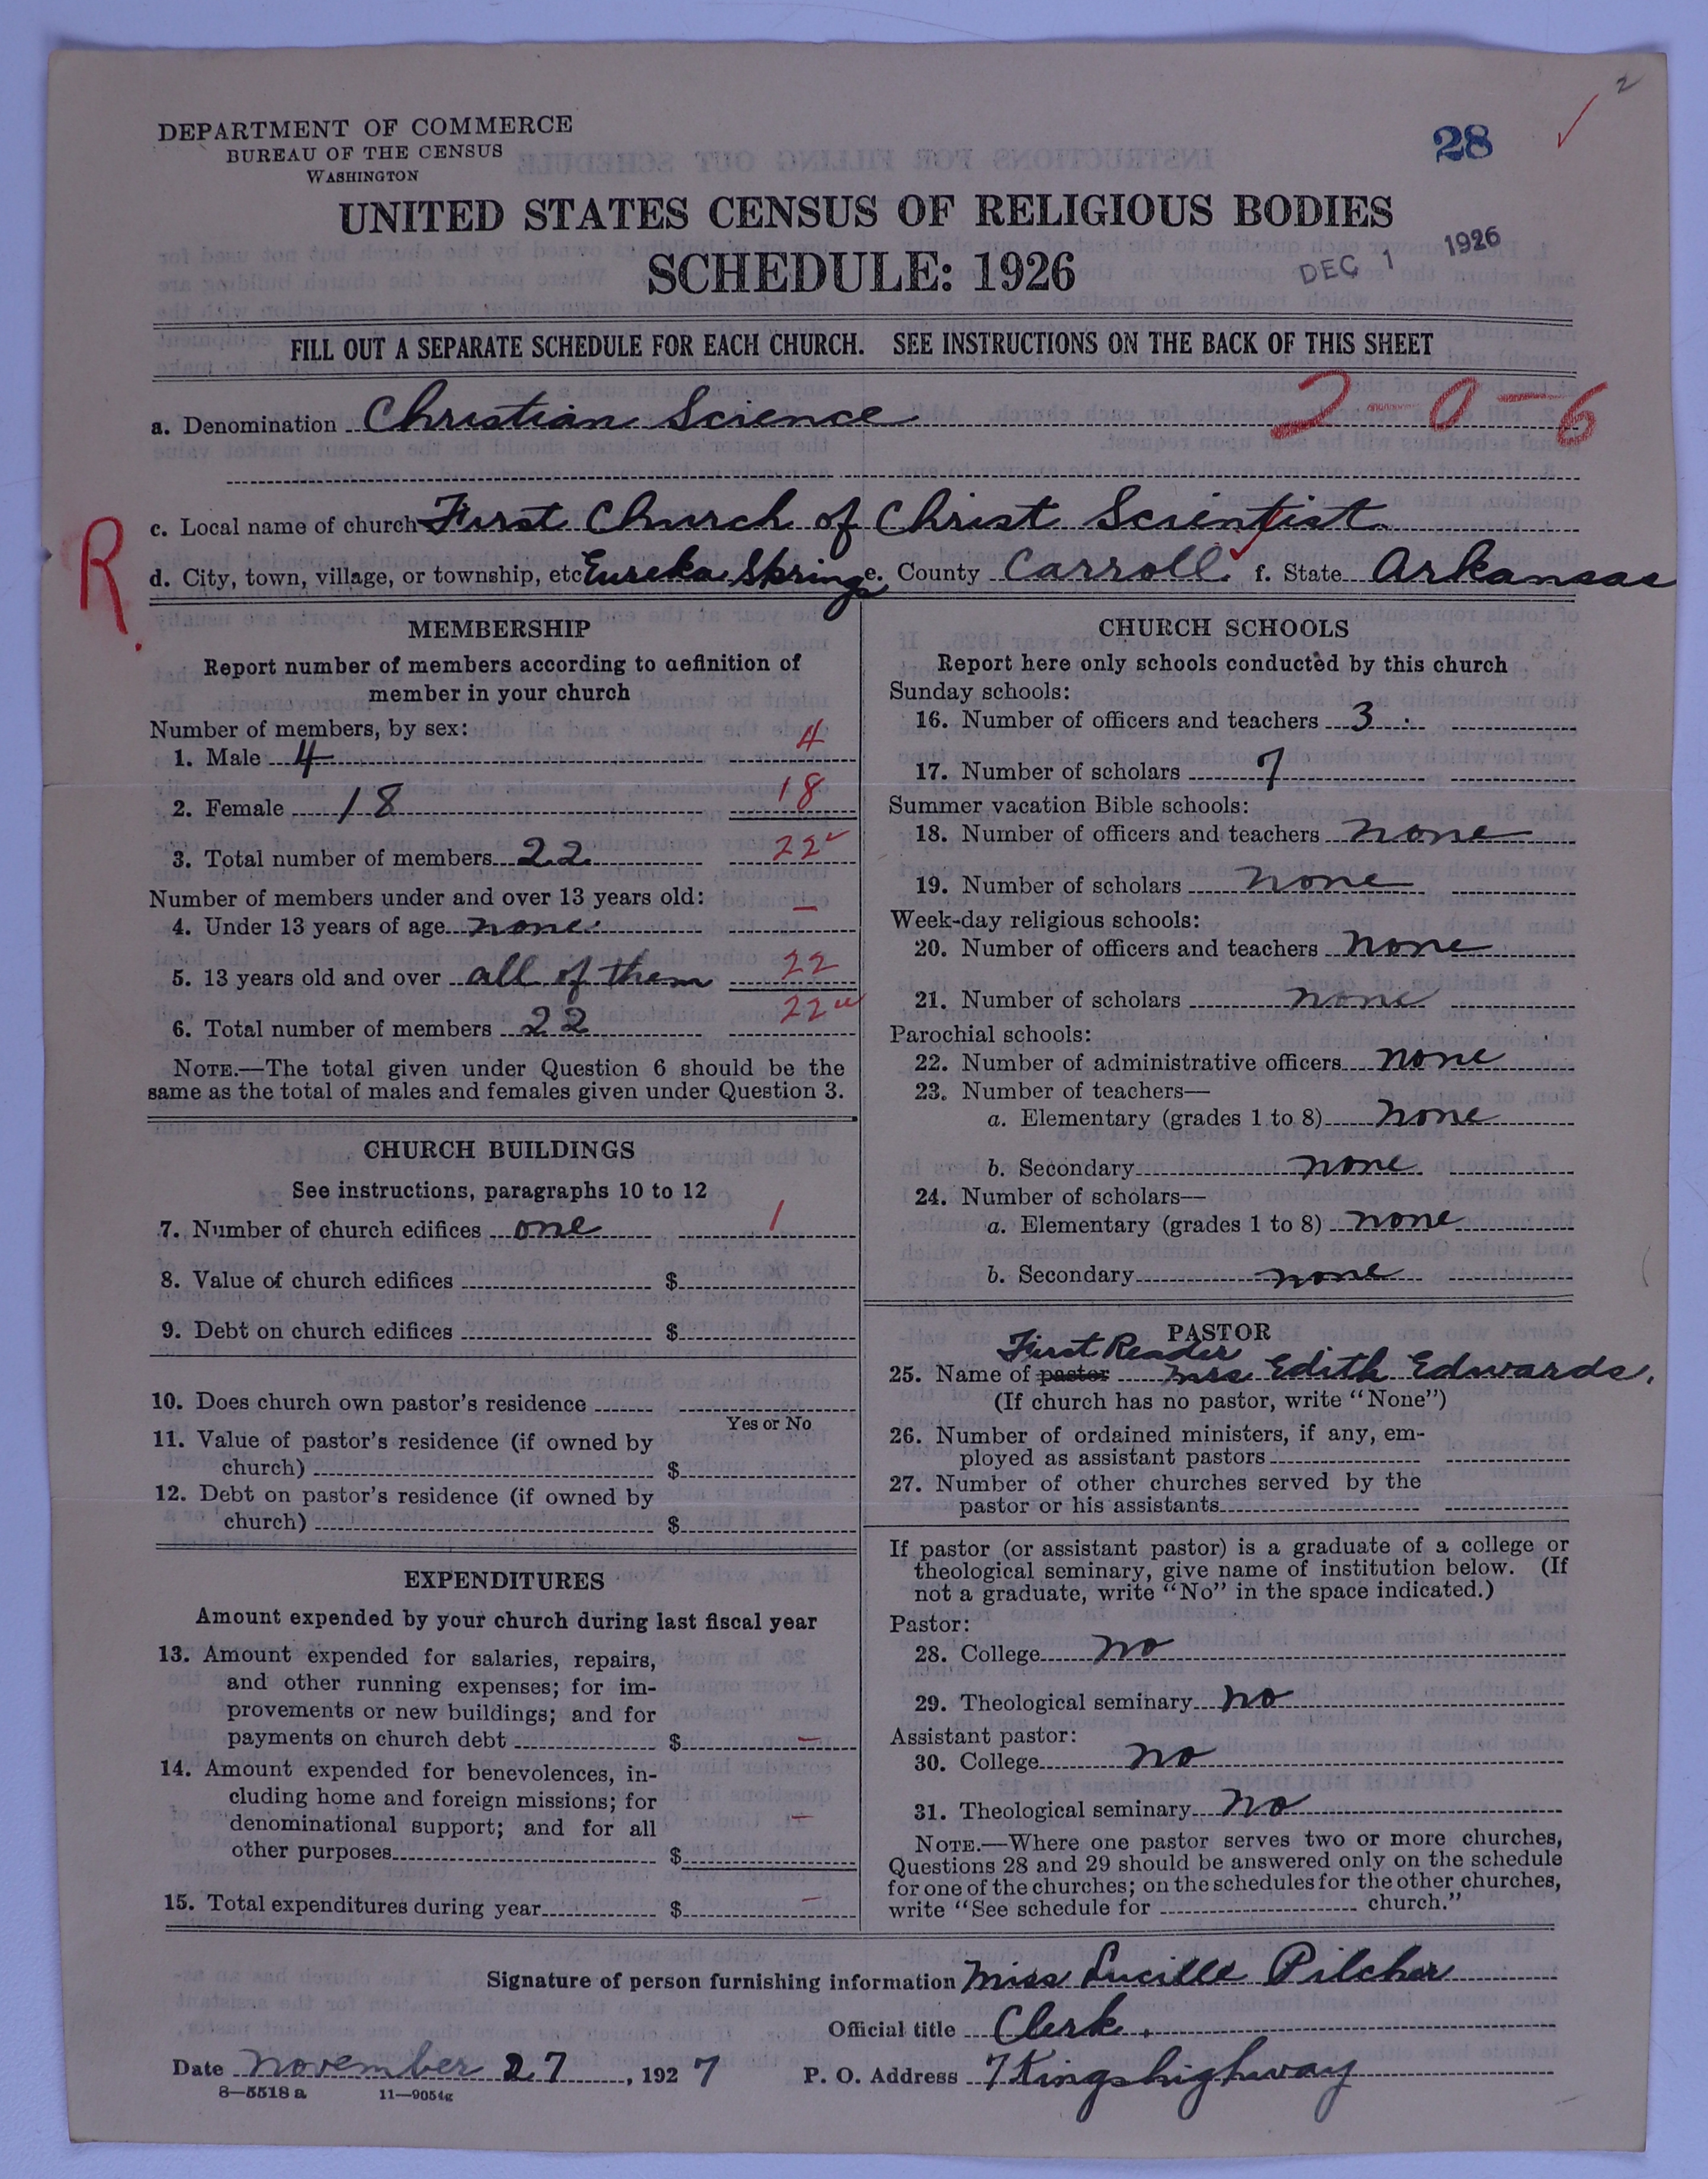 2
DEPARTMENT OF COMMERCE
BUREAU OF THE CENSUS
WASHINGTON
28
UNITED STATES CENSUS OF RELIGIOUS BODIES
SCHEDULE: 1926
DEC 1 1926
FILL OUT A SEPARATE SCHEDULE FOR EACH CHURCH. SEE INSTRUCTIONS ON THE BACK OF THIS SHEET
a. Denomination Christian Science 2-0-6
c. Local name of church First Church of Christ Scientist
R.
d. City, town, village, or township, etc Eureka Springs e. County Carroll f. State Arkansas
MEMBERSHIP
Report number of members according to definition of
member in your church
Number of members, by sex:
1. Male 4 4
2. Female 18 18
3. Total number of members 22 22
Number of members under and over 13 years old:
4. Under 13 years of age none. –
5. 13 years old and over all of them 22
6. Total number of members 22 22
NOTE.—The total given under Question 6 should be the
same as the total of males and females given under Question 3.
CHURCH BUILDINGS
See instructions, paragraphs 10 to 12
7. Number of church edifices one 1
8. Value of church edifices $
9. Debt on church edifices $
10. Does church own pastor's residence
Yes or No
11. Value of pastor's residence (if owned by
church) $
12. Debt on pastor's residence (if owned by
church) $
EXPENDITURES
Amount expended by your church during last fiscal year
13. Amount expended for salaries, repairs,
and other running expenses; for im-
provements or new buildings; and for
payments on church debt $ –
14. Amount expended for benevolences, in-
cluding home and foreign missions; for
denominational support; and for all
other purposes $ –
15. Total expenditures during year $ –
CHURCH SCHOOLS
Report here only schools conducted by this church
Sunday schools:
16. Number of officers and teachers 3
17. Number of scholars 7
Summer vacation Bible schools:
18. Number of officers and teachers none
19. Number of scholars none
Week-day religious schools:
20. Number of officers and teachers none
21. Number of scholars none
Parochial schools:
22. Number of administrative officers none
23. Number of teachers—
a. Elementary (grades 1 to 8) none
b. Secondary none
24. Number of scholars—
a. Elementary (grades 1 to 8) none
b. Secondary none
PASTOR
First Reader
25. Name of pastor Mrs Edith Edwards.
(If church has no pastor, write "None")
26. Number of ordained ministers, if any, em-
ployed as assistant pastors
27. Number of other churches served by the
pastor or his assistants
If pastor (or assistant pastor) is a graduate of a college or
theological seminary, give name of institution below. (If
not a graduate, write "No" in the space indicated.)
Pastor:
28. College no
29. Theological seminary no
Assistant pastor:
30. College no
31. Theological seminary no
NOTE.—Where one pastor serves two or more churches,
Questions 28 and 29 should be answered only on the schedule
for one of the churches; on the schedules for the other churches,
write "See schedule for church."
Signature of person furnishing information Miss Lucille Pilcher
Official title Clerk.
Date November 27, 1927 P. O. Address 7 Kingshighway
8—5518 a 11—9054g